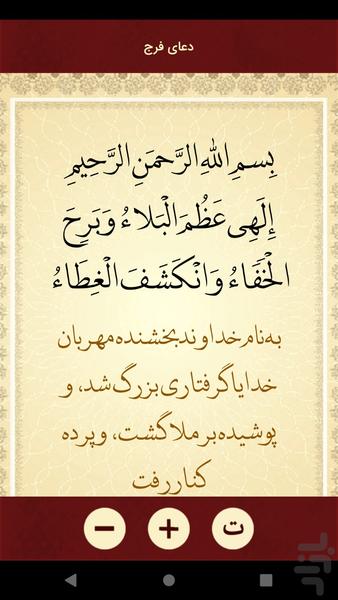 دعای فرج
بِسمِ اللهِ الرَّحمَنِ الرَّحِيمِ
إِلَهِی عَظُمَ الْبَلاءُ وَ بَرِحَ
الْخَفَاءُ وَ انْكَشَفَ الْغِطَاءُ
به نام خداوند بخشنده مهربان
خدایا گرفتاری بزرگ شد، و
پوشیده بر ملا گشت، و پرده
کنار رفت
− + ت
بازار